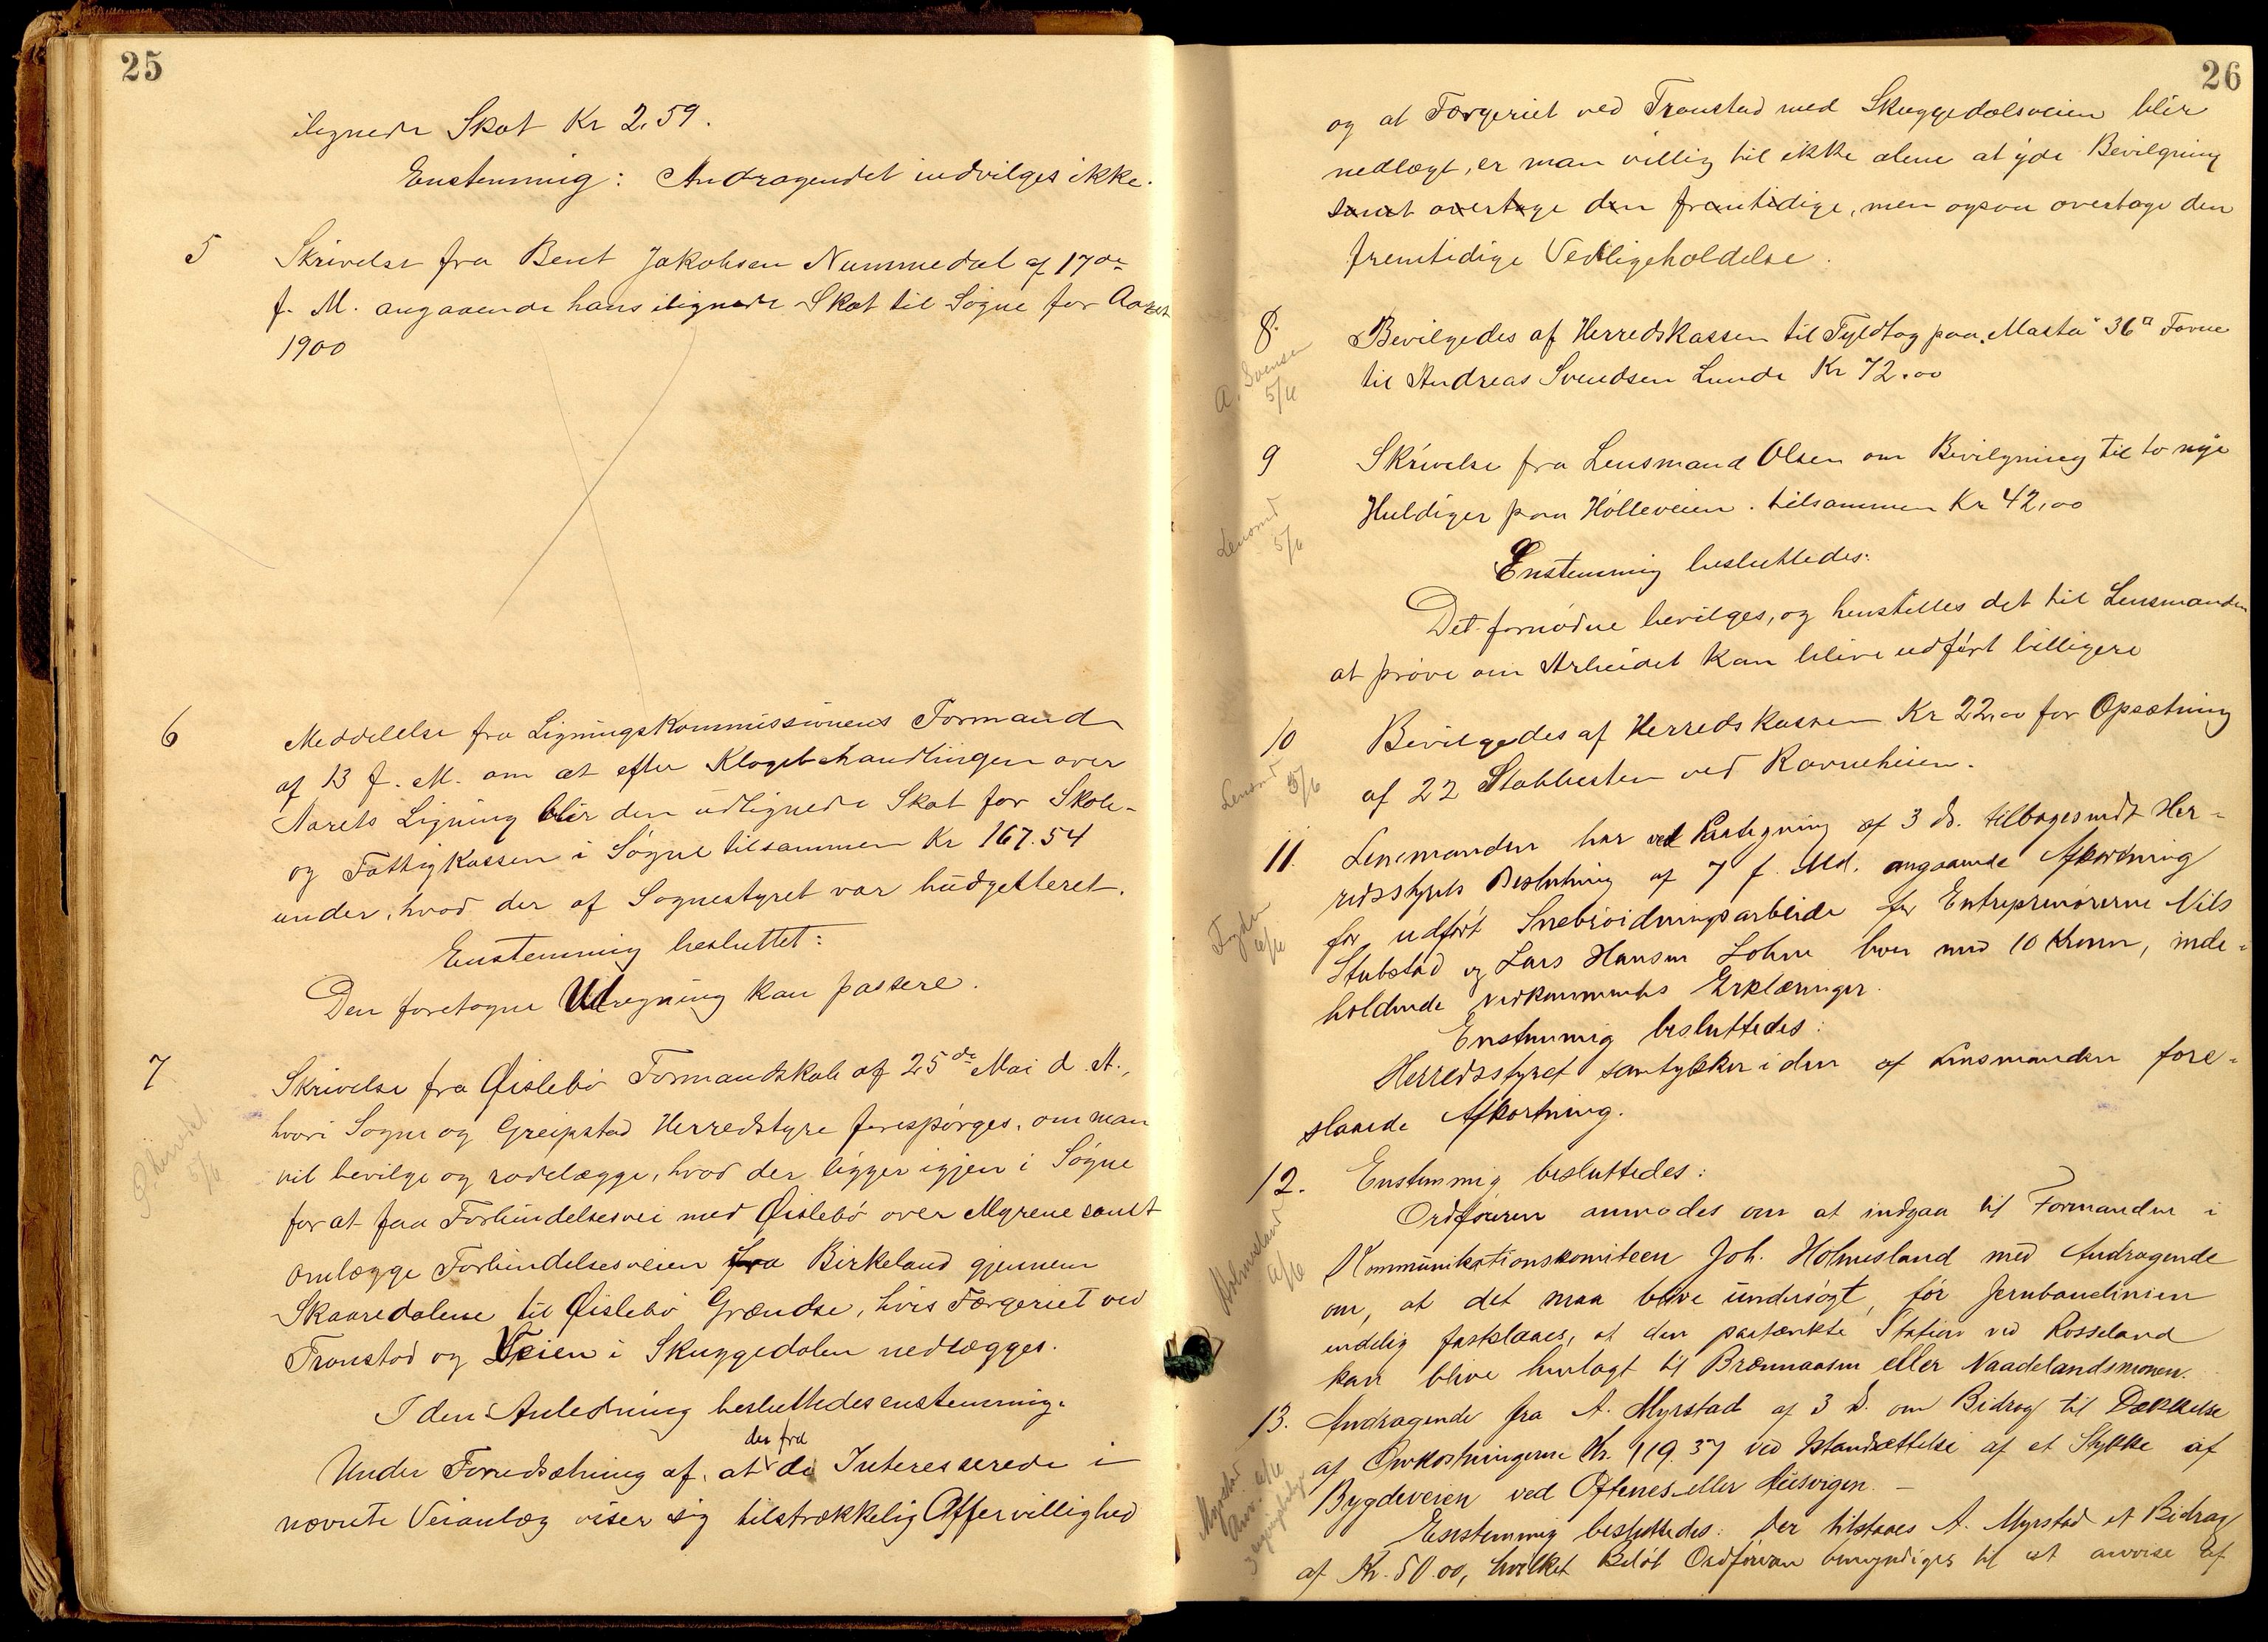 25
ilignede Skat Kr 2,59.
Enstemmig: Andragendet indvilges ikke.
5 Skrivelse fra Bent Jakobsen Nummedal af 17de
f. M. angaaende hans ilignede Skat til Søgne for Aaret
1900
6 Meddelelse fra Ligningskommissionens Formand
af 13 f. M. om at efter Klagebehandlingen over
Aarets Ligning blir den udlignede Skat for Skole-
og Fattigkassen i Søgne tilsammen Kr 167.54
under, hvad der af Sognestyret var budgetteret.
Enstemmig besluttet:
Den foretagne Udregning kan passere.
7 Skrivelse fra Øislebø Formandskab af 25de Mai d. A.,
5/6
hvori Søgne og Greipstad Herredstyre forespørges, om man
vil bevilge og rodelægge, hvad der ligger igjen i Søgne
for at faa Forbindelsesvei med Øislebø over Myrene samt
omlægge Forbindelsesveien fra Birkeland gjennem
Skaaredalene til Øislebø Grændse, hvis Færgeriet ved
Tronstad og Veien i Skuggedalen nedlægges.
I den Anledning besluttedes enstemmig:
Under Forudsætning af, at der fra de Interesserede i
nævnte Veianlæg viser sig tilstrækkelig Offervillighed
26
og at Færgeriet ved Tronstad med Skuggedalsveien blir
nedlagt, er man villig til ikke alene at yde Bevilgning
samt overtage den fremtidige, men ogsaa overtage den
fremtidige Vedligeholdelse.
8. Bevilgedes af Herredskassen til Fyldtag paa "Masta" 36 □ Favne
til Andreas Svendsen Lunde Kr 72.00
A. Svensen
5/6
9 Skrivelse fra Lensmand Olsen om Bevilgning til to nye
Huldiger paa Hølleveien. tilsammen Kr 42,00
Lensmd
5/6
Enstemmig besluttedes:
Det fornødne bevilges, og henstilles det til Lensmanden
at prøve om Arbeidet kan blive udført billigere
10 Bevilgedes af Herredskassen Kr 22,00 for Opsætning
af 22 Stabbesten ved Ravneheien.
Lensmd
5/6
11. Lensmanden har ved Paategning af 3 ds. tilbagesendt Her-
redsstyrets Beslutning af 7 f. Md. angaaende Afkortning
for udført Snebrøidningsarbeide for Entreprenørerne Nils
Stubstad og Lars Hansen Lohne hver med 10 Kroner, inde-
holdende vedkommendes Erklæringer.
Fogden
6/6
Enstemmig besluttedes:
Herredsstyret samtykker i den af Lensmanden fore-
slaaede Afkortning.
12. Enstemmig besluttedes:
Ordføreren anmodes om at indgaa til Formanden i
Kommunikationskomiteen Joh. Holmesland med Andragende
om, at det maa blive undersøgt, før Jernbanelinien
endelig fastslaaes, at den paatænkte Station ved Rosseland
kan blive henlagt til Brennaasen eller Naadelandsmonen.
Holmesland
6/6
13. Andragende fra A. Myrstad af 3 ds. om Bidrag til Dækkelse
af Omkostningerne Kr. 119.37 ved Istandsættelse af et Stykke af
Bygdeveien ved Oftenes eller Ausvigen. —
Myrstad
Anv. 6/6
Enstemmig besluttedes: Der tilstaaes A. Myrstad et Bidrag
af Kr. 50.00, hvilket Beløb Ordføreren bemyndiges til at anvise af